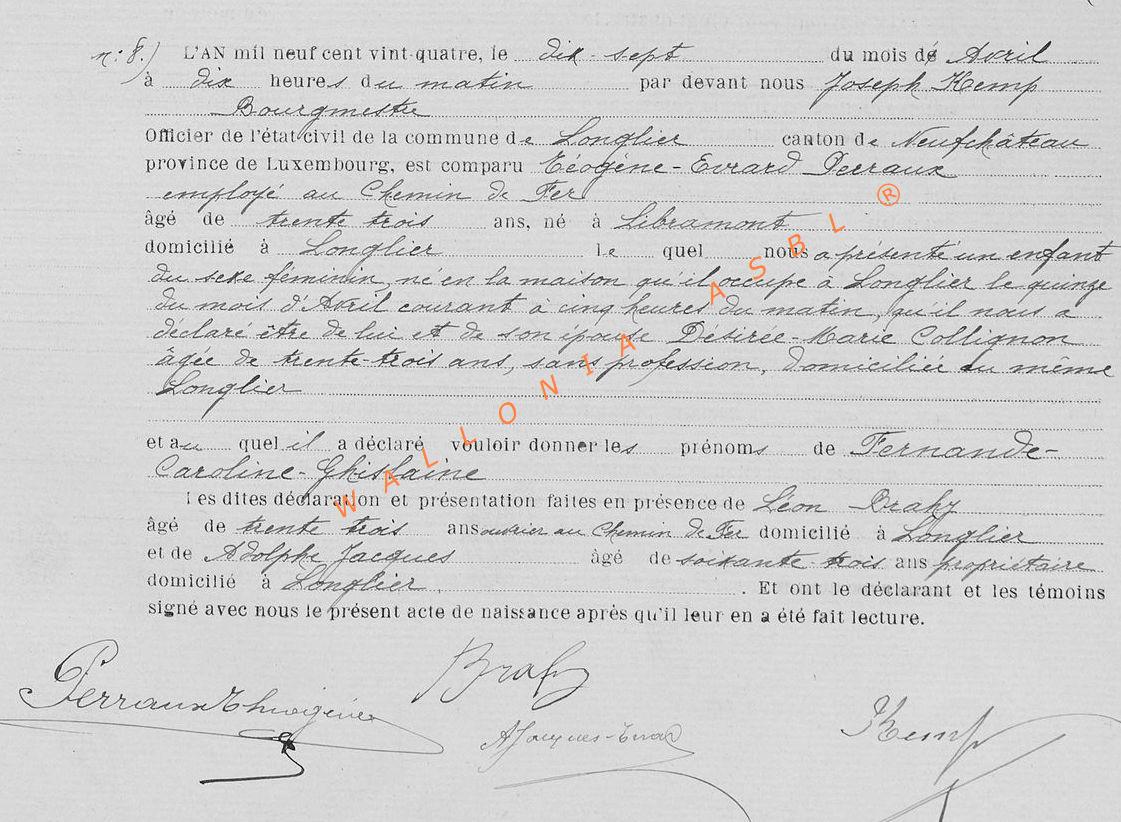 n: 8.) L'AN mil neuf cent vint-quatre, le dix-sept du mois dé Avril
à dix heures du matin par devant nous Joseph Kemp
Bourgmestre
Officier de l'état civil de la commune de Longlier canton de Neufchâteau
province de Luxembourg, est comparu Téogène-Evrard Perraux
employé au Chemin de Fer
âgé de trente trois ans, né à Libramont
domicilié à Longlier le quel nous a présenté un enfant
du sexe féminin, né en la maison qu'il occupe à Longlier le quinze
du mois d'Avril courant à cinq heures du matin, qu'il nous a
déclaré être de lui et de son épouse Désirée-Marie Collignon
âgée de trente-trois ans, sans profession, domiciliée au même
Longlier
et au quel il a déclaré vouloir donner les prénoms de Fernande-
Caroline-Ghislaine
Les dites déclaration et présentation faites en présence de Léon Brahy
âgé de trente trois ans ouvrier au Chemin de Fer domicilié à Longlier
et de Adolphe Jacques âgé de soixante trois ans propriétaire
domicilié à Longlier. Et ont le déclarant et les témoins
signé avec nous le présent acte de naissance après qu'il leur en a été fait lecture.
WALLONIA ASBL ®
Brahy
Perraux Théogène
AJacques-Evrard
Kemp